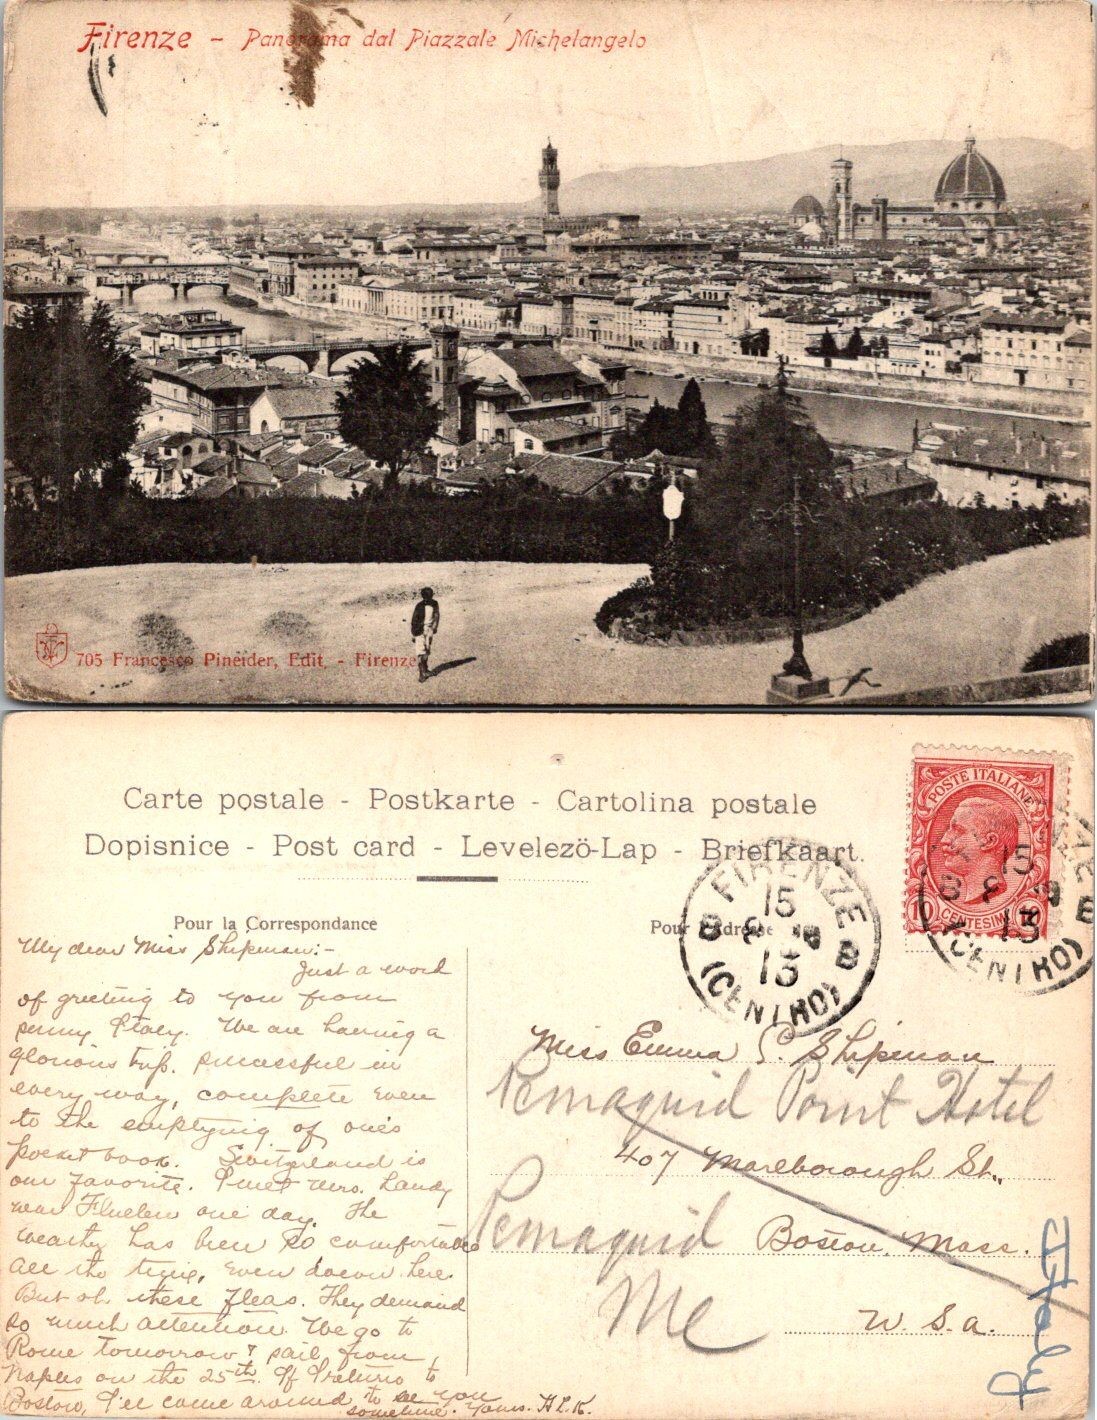 Firenze - Panorama dal Piazzale Michelangelo
705 Francesco Pineider, Edit. - Firenze
Carte postale - Postkarte - Cartolina postale
Dopisnice - Post card - Levelezö-Lap - Briefkaart.
Pour la Correspondance
Pour l'Adresse
POSTE ITALIANE
10 CENTESIMI
FIRENZE
15
8
13
B B
(CENTRO)
15
8
13
B
(CENTRO)
My dear Miss Shipman:-
Just a word
of greeting to you from
sunny Italy. We are having a
glorious trip. successful in
every way, complete even
to the emptying of one's
pocket book. Switzerland is
our favorite. I met Mrs. Landy
near Fluelen one day. The
weather has been so comfortable
all the time, even down here.
But oh these fleas. They demand
so much attention. We go to
Rome tomorrow & sail from
Naples on the 25th. If I return to
Boston, I'll come around to see you
sometime. Yours. H.L.K.
Miss Emma S. Shipman
Pemaquid Point Hotel
407 Marlborough St.,
Pemaquid
Boston, Mass.
Me
U.S.A.
Italy